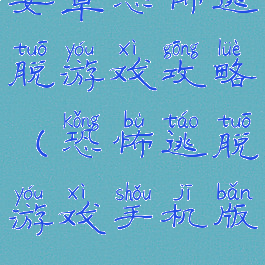 安卓恐怖逃
tuō yóu xì gōng lüè
脱游戏攻略
kǒng bù táo tuō
(恐怖逃脱
yóu xì shǒu jī bǎn
游戏手机版